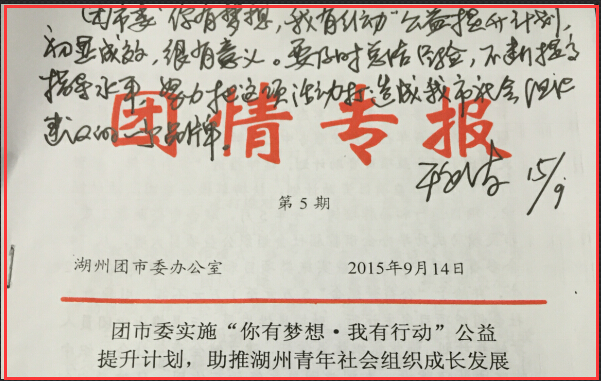 团市委“你有梦想，我有行动”公益提升计划，
初显成效，很有意义。要及时总结经验，不断提高
指导水平，努力把这项活动打造成我市社会组织
建设的一个品牌。
团情专报
15/9
第5期
湖州团市委办公室 2015年9月14日
团市委实施“你有梦想·我有行动”公益
提升计划，助推湖州青年社会组织成长发展